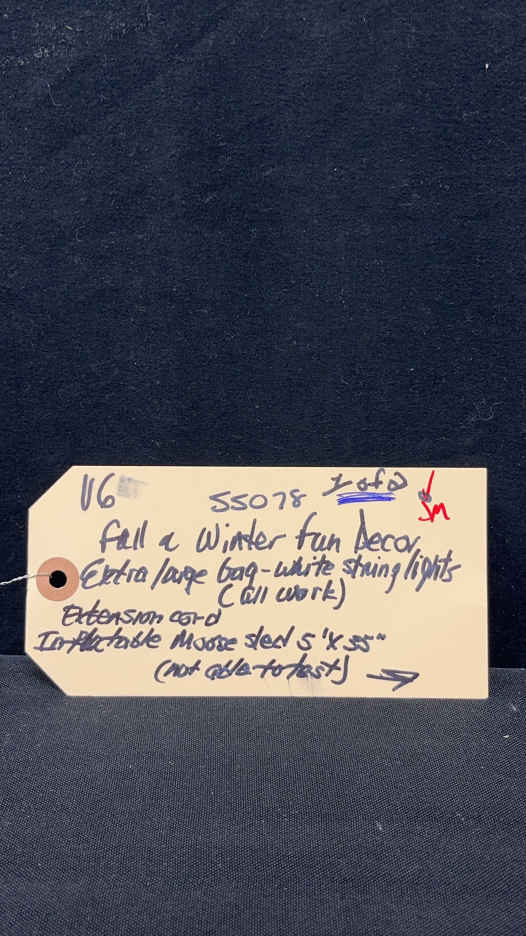 V6 55078 1 of 2
Fall & Winter Fun Decor
Extra large bag - white string lights
(all work)
Extension cord
Inflatable Moose sled 5' X 35"
(not able to test) →